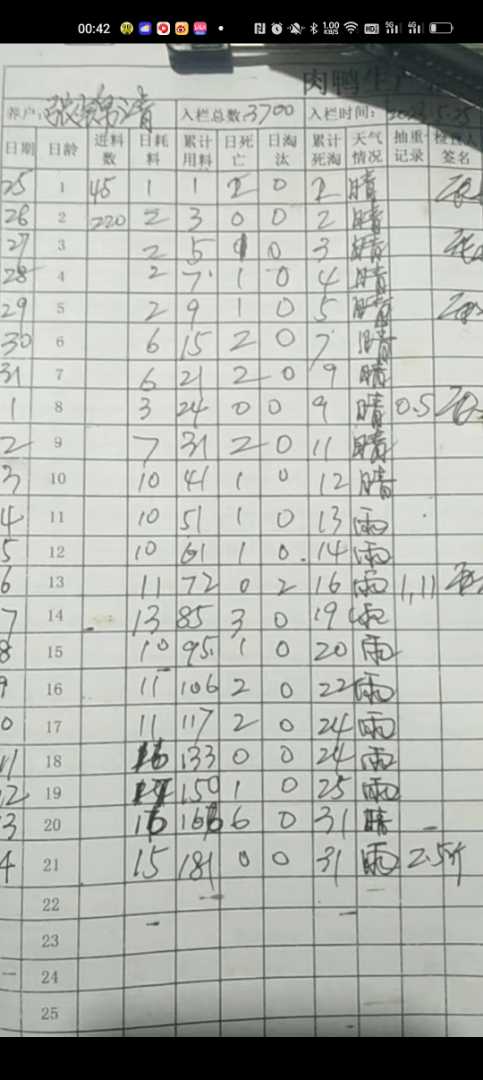 00:42
1.00 KB/S HD 5G 4G
肉鸭生产
养户： 张锦清 入栏总数：3700 入栏时间：2023.5.25
日期 日龄 进料数 日耗料 累计用料 日死亡 日淘汰 累计死淘 天气情况 抽重记录 检查人签名
25 1 45 1 1 2 0 2 晴
26 2 220 2 3 0 0 2 晴
27 3 2 5 1 0 3 晴
28 4 2 7 1 0 4 晴
29 5 2 9 1 0 5 晴
30 6 6 15 2 0 7 晴
31 7 6 21 2 0 9 晴
1 8 3 24 0 0 9 晴 0.5
2 9 7 31 2 0 11 晴
3 10 10 41 1 0 12 晴
4 11 10 51 1 0 13 雨
5 12 10 61 1 0 14 雨
6 13 11 72 0 2 16 雨 1.11
7 14 13 85 3 0 19 雨
8 15 10 95 1 0 20 雨
9 16 11 106 2 0 22 雨
0 17 11 117 2 0 24 雨
11 18 16 133 0 0 24 雨
12 19 17 150 1 0 25 雨
3 20 16 166 6 0 31 晴
4 21 15 181 0 0 31 雨 2.5斤
22
23
24
25